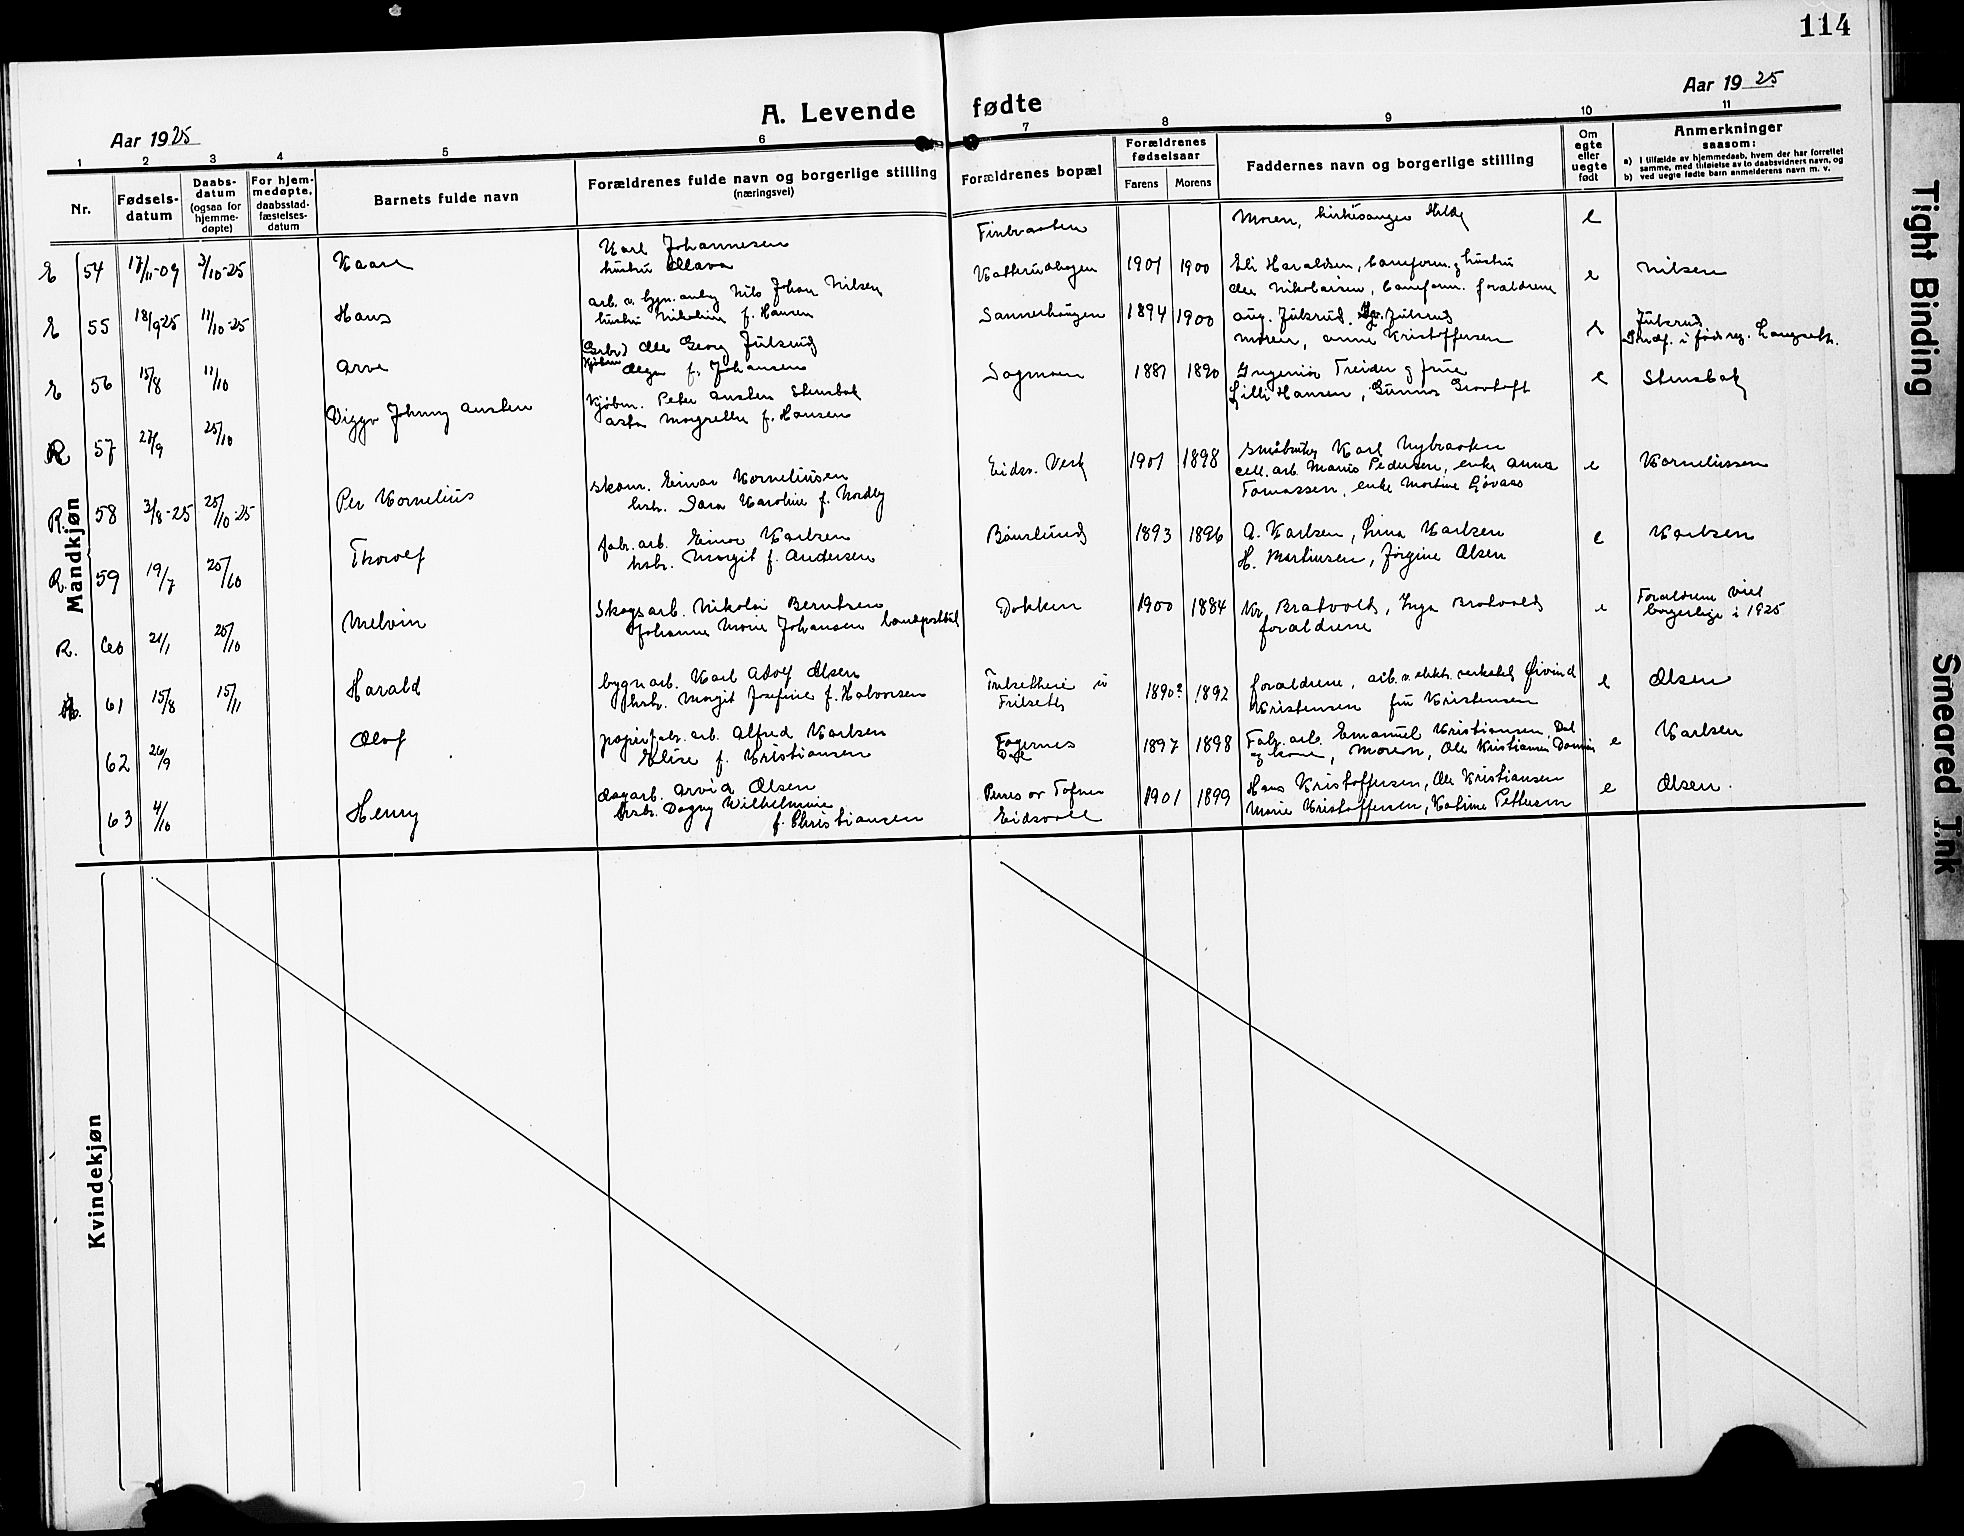 114
Aar 1925
A. Levende fødte
Aar 1925
1 2 3 4 5 6 7 8 9 10 11
Nr.
Fødselsdatum
Daabsdatum (ogsaa for hjemmedøpte)
For hjemmedøpte, daabsstadfæstelsesdatum
Barnets fulde navn
Forældrenes fulde navn og borgerlige stilling
(næringsvei)
Forældrenes bopæl
Forældrenes fødselsaar
Farens Morens
Faddernes navn og borgerlige stilling
Om egte eller uegte født
Anmerkninger
saasom:
a) I tilfælde av hjemmedaab, hvem der har forrettet samme, med tilføielse av to daabsvidners navn, og
b) ved uegte fødte barn anmelderens navn m. v.
Mandkjøn
E 54 17/11-09 3/10-25 Kaare
Karl Johannesen
hustru Olava
Finbraaten
Moren, kirkesanger
e
E 55 18/9-25 11/10-25 Hans
arb. v. Nils Johan Nilsen
hustru Nikoline f. Hansen
1901 1900
Eli Haraldsen, og hustru
Ole Nikolaisen, foraldrene
e Nilsen
E 56 15/8 11/10 Arve
Ole Georg Julsrud
Olga f. Johansen
Sannerhaugen
1894 1900
Aug. Julsrud, Julsrud
Moren, Anna Kristoffersen
e Julsrud
i føds.reg. Langseth.
R 57 27/9 25/10 Viggo Johnny Austen
Kjøbm. Peter Austen Stensbak
Asta Margrethe f. Hansen
Sagmoen
1887 1890
Ingeniør Treider og frue
Lilli Hansen, Gunnar
e Stensbak
R. 58 3/8-25 25/10-25 Per Kornelius
skom. Einar Korneliussen
hstr. Sara Karoline f. Nordby
Eidsv. Verk
1901 1898
Karl Nybraaten
cell. arb. Marius Pedersen, enke Anna
Tomassen, enke Martine
e Korneliussen
R. 59 19/7 25/10 Thorolf
fabr. arb. Einar Karlsen
hstr. Margit f. Andersen
Bønslund
1893 1896
A. Karlsen, Lina Karlsen
H. Martinsen, Jørgine Olsen
e Karlsen
R. 60 21/1 25/10 Melvin
Skogsarb. Nikolai Berntsen
Johanne Marie Johansen
Dokken
1900 1884
Kr. Bratvold, Inga Bratvold
foraldrene
e Foraldrene viet
borgerlige i 1925
61 15/8 15/11 Harald
bygn.arb. Karl Adolf Olsen
hstr. Margit Josefine f. Halvorsen
1890? 1892
foraldrene, arb. v. elekt. verket Øivind
Kristensen fru Kristensen
e Olsen
62 26/9 Olaf
papirfabr. arb. Alfred Karlsen
Elise f. Kristiansen
Fagernes
Dal
1897 1898
Fabr. arb. Emanuel Kristiansen, Dal
og kone, Moren, Ole Kristiansen
e Karlsen
63 4/10 Henry
dagarb. Arvid Olsen
hstr. Dagny Wilhelmine
f. Christiansen
Eidsvoll
1901 1899
Hans Kristoffersen, Ole Kristiansen
Marie Kristoffersen, Katrine Pettersen
e Olsen.
Kvindekjøn
Tight Binding
Smeared Ink